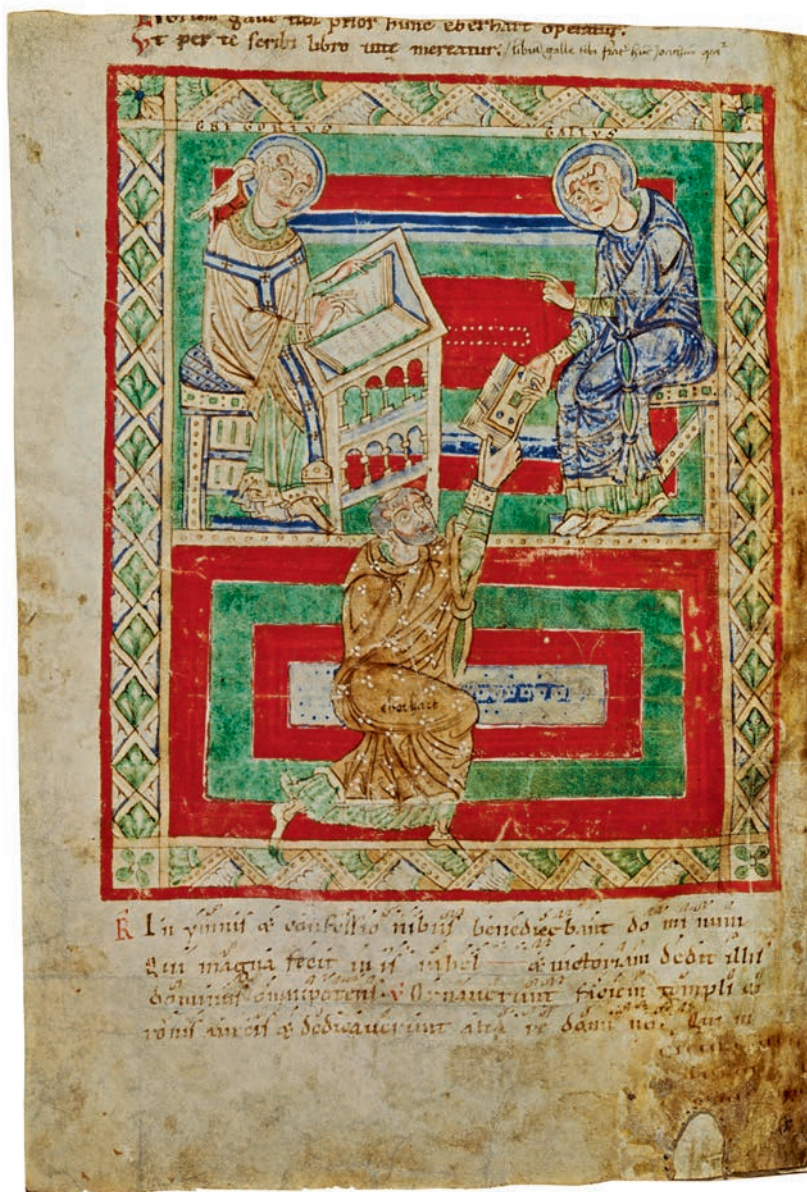 galle tibi prior hunc eberhart operatur.
Vt per te scribi libro uitę mereatur: galle tibi
GREGORIVS GALLVS
eberhart
R In ymnis & confessionibus benedicebant do mi num
Qui magna fecit in israhel & uictoriam dedit illis
dominus omnipotens. V Ornauerunt faciem templi co
ronis aureis & dedicauerunt alta re domi no. Qui m